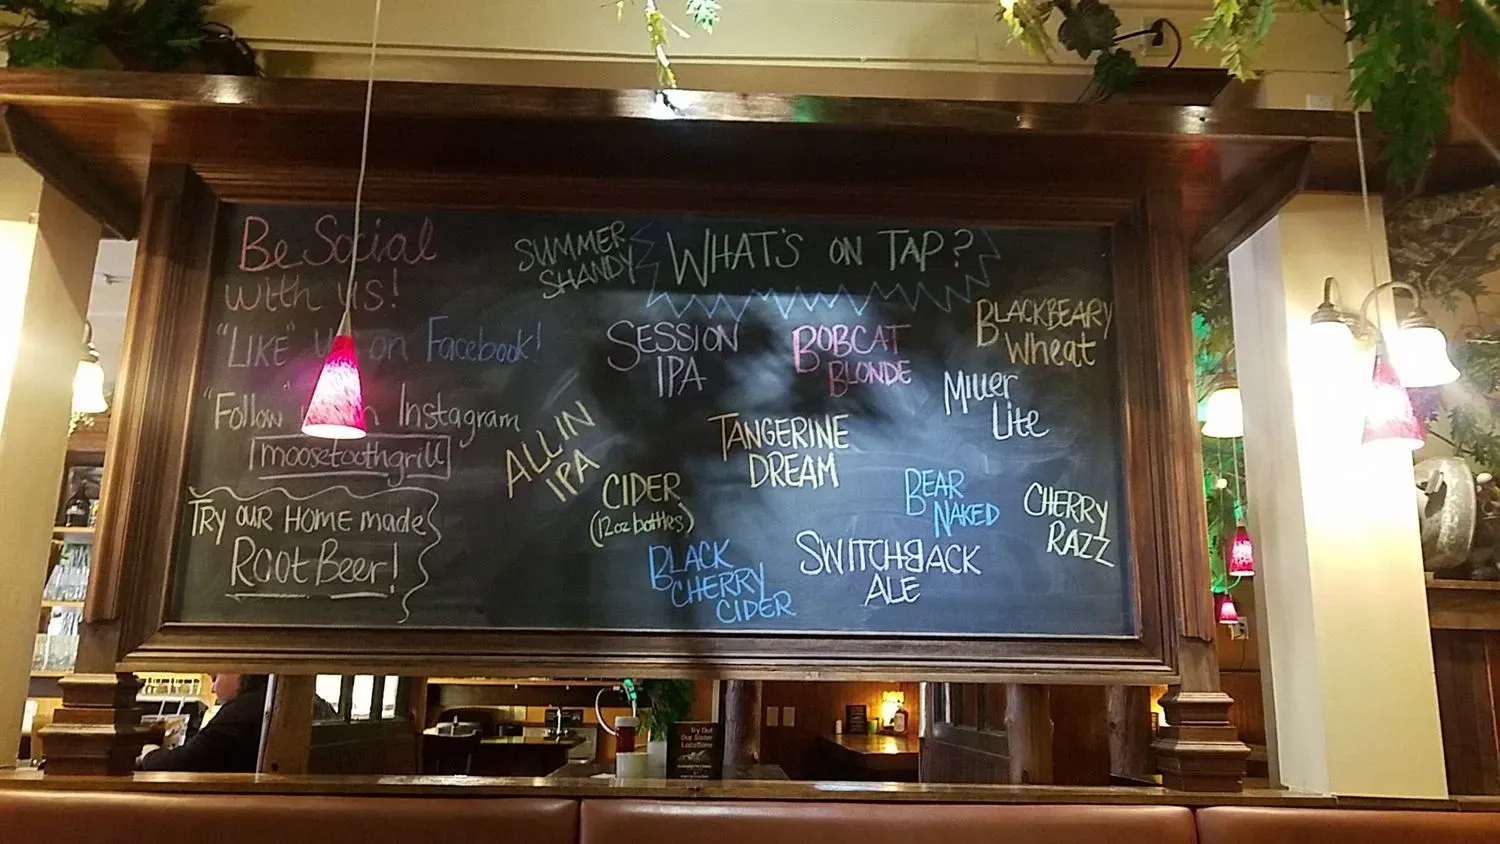 Be Social
with us!
"LIKE" us on Facebook!
"Follow" on Instagram
moosetoothgrill
TRY OUR HOMEmade
ROOT BEER!
SUMMER
SHANDY
WHAT'S ON TAP?
SESSION
IPA
BOBCAT
BLONDE
BLACKBEARY
Wheat
MILLER
Lite
ALL IN
IPA
TANGERINE
DREAM
CIDER
(12oz bottles)
BEAR
NAKED
CHERRY
RAZZ
BLACK
CHERRY
CIDER
SWITCHBACK
ALE
Try Out
Our Sister
Locations